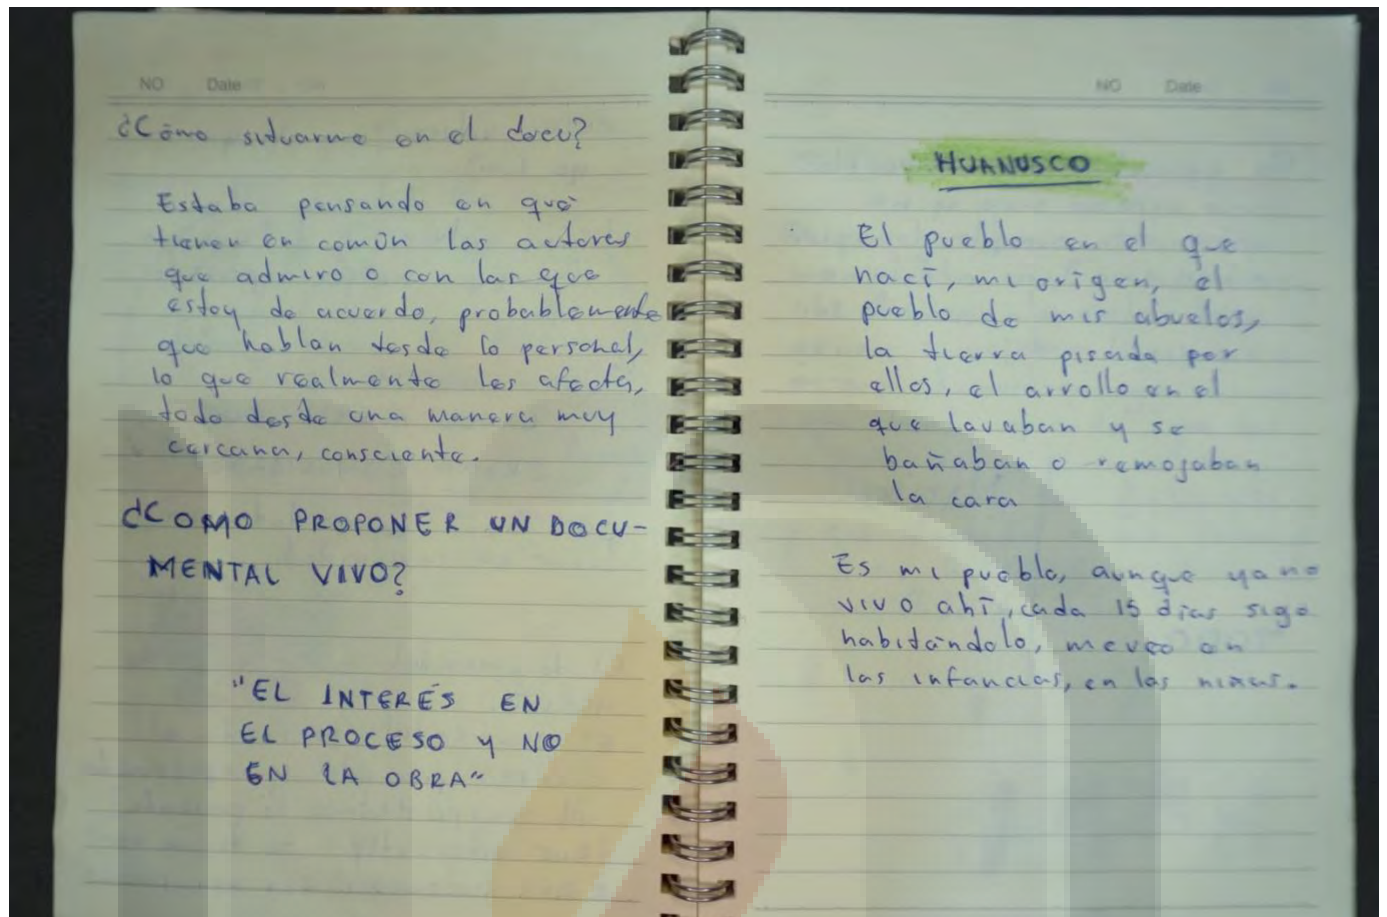 NO Date
¿Cómo situarme en el docu?
Estaba pensando en qué
tienen en común las autores
que admiro o con las que
estoy de acuerdo, probablemente
que hablan desde lo personal,
lo que realmente les afecta,
todo desde una manera muy
cercana, consciente.
¿COMO PROPONER UN DOCU-
MENTAL VIVO?
"EL INTERÉS EN
EL PROCESO Y NO
EN LA OBRA"
NO Date
HUANUSCO
El pueblo en el que
nací, mi origen, el
pueblo de mis abuelos,
la tierra pisada por
ellos, el arrollo en el
que lavaban y se
bañaban o remojaban
la cara
Es mi pueblo, aunque ya no
vivo ahí, cada 15 días sigo
habitándolo, me veo en
las infancias, en las niñas.